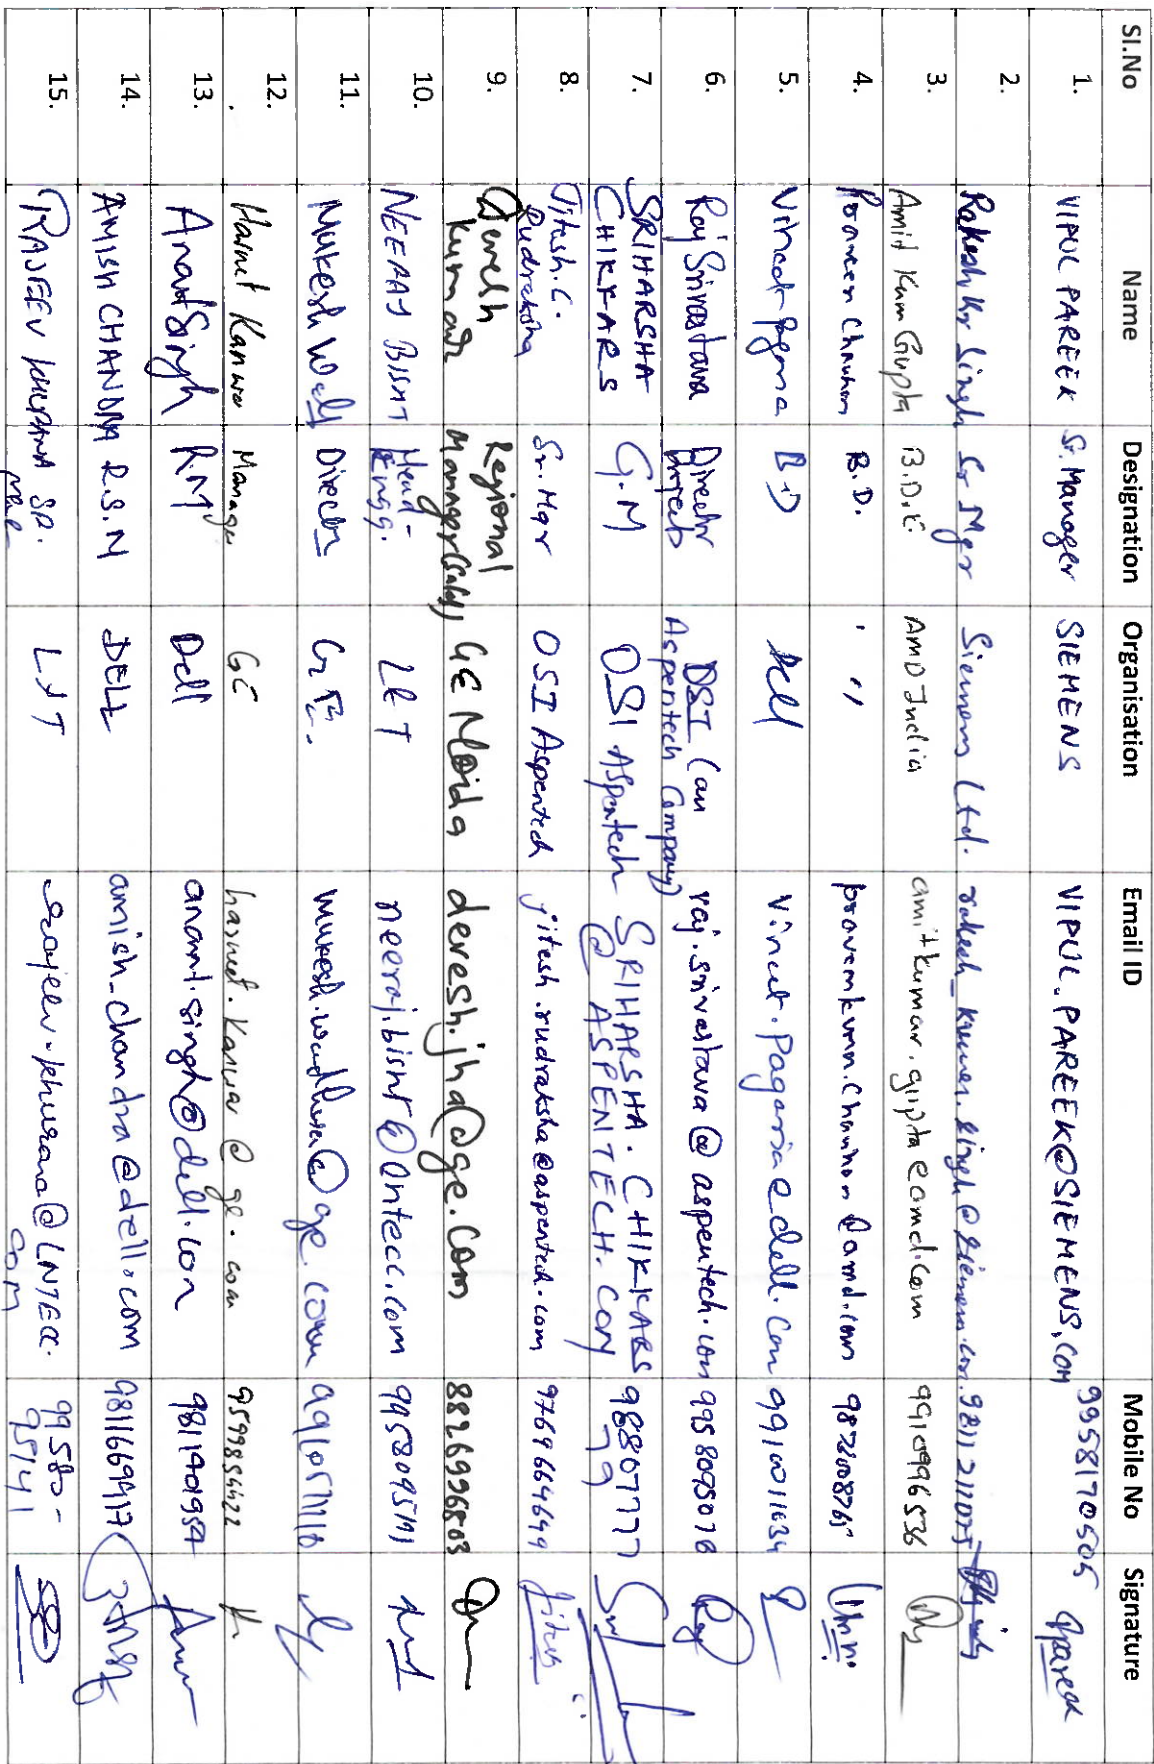 Sl.No Name Designation Organisation Email ID Mobile No Signature
1. VIPUL PAREEK Sr. Manager SIEMENS VIPUL.PAREEK@SIEMENS.COM 9958170505 Pareek
2. Rakesh Kr Singh Sr Mgr Siemens Ltd. rakesh_kumar.singh@siemens.com 9811211075
3. Amit Kum Gupta B.D.E. AMD India amitkumar.gupta@amd.com 9910996536
4. Praveen Chauhan B.D. ' '' praveenkumar.chauhan@amd.com
5. Vineet Pagaria B.D Dell Vineet.Pagaria@dell.com 9910011634
6. Raj Srivastava Director Projects OSI (an Aspentech Company) raj.srivastava@aspentech.com 9958095078 Raj
7. SRIHARSHA CHIKKARS G.M OSI Aspentech SRIHARSHA.CHIKKARS@ASPENTECH.COM 9880777779
8. Jitesh.C. Rudraksha Sr. Mgr OSI Aspentech jitesh.rudraksha@aspentech.com 9769664649 Jitesh
9. Deresh Kumar Regional Manager(Sales) GE Noida deresh.jha@ge.com 8826996803
10. NEERAJ BISHT Head - Engg. L&T neerajbisht@lntecc.com 9958095191
11. Mukesh Director GE. mukesh.wadhera@ge.com
12. Harneet Kanwar Manager GE harneet.Kanwar@ge.com 9599854422
13. Anant Singh R.M Dell anant.singh@dell.com 9811401954
14. AMISH CHANDRA R.S.M DELL amish_chandra@dell.com 9811669417
15. RAJEEV KHURANA SR. L&T rajeev-khurana@LNTECC.com 99580-95141